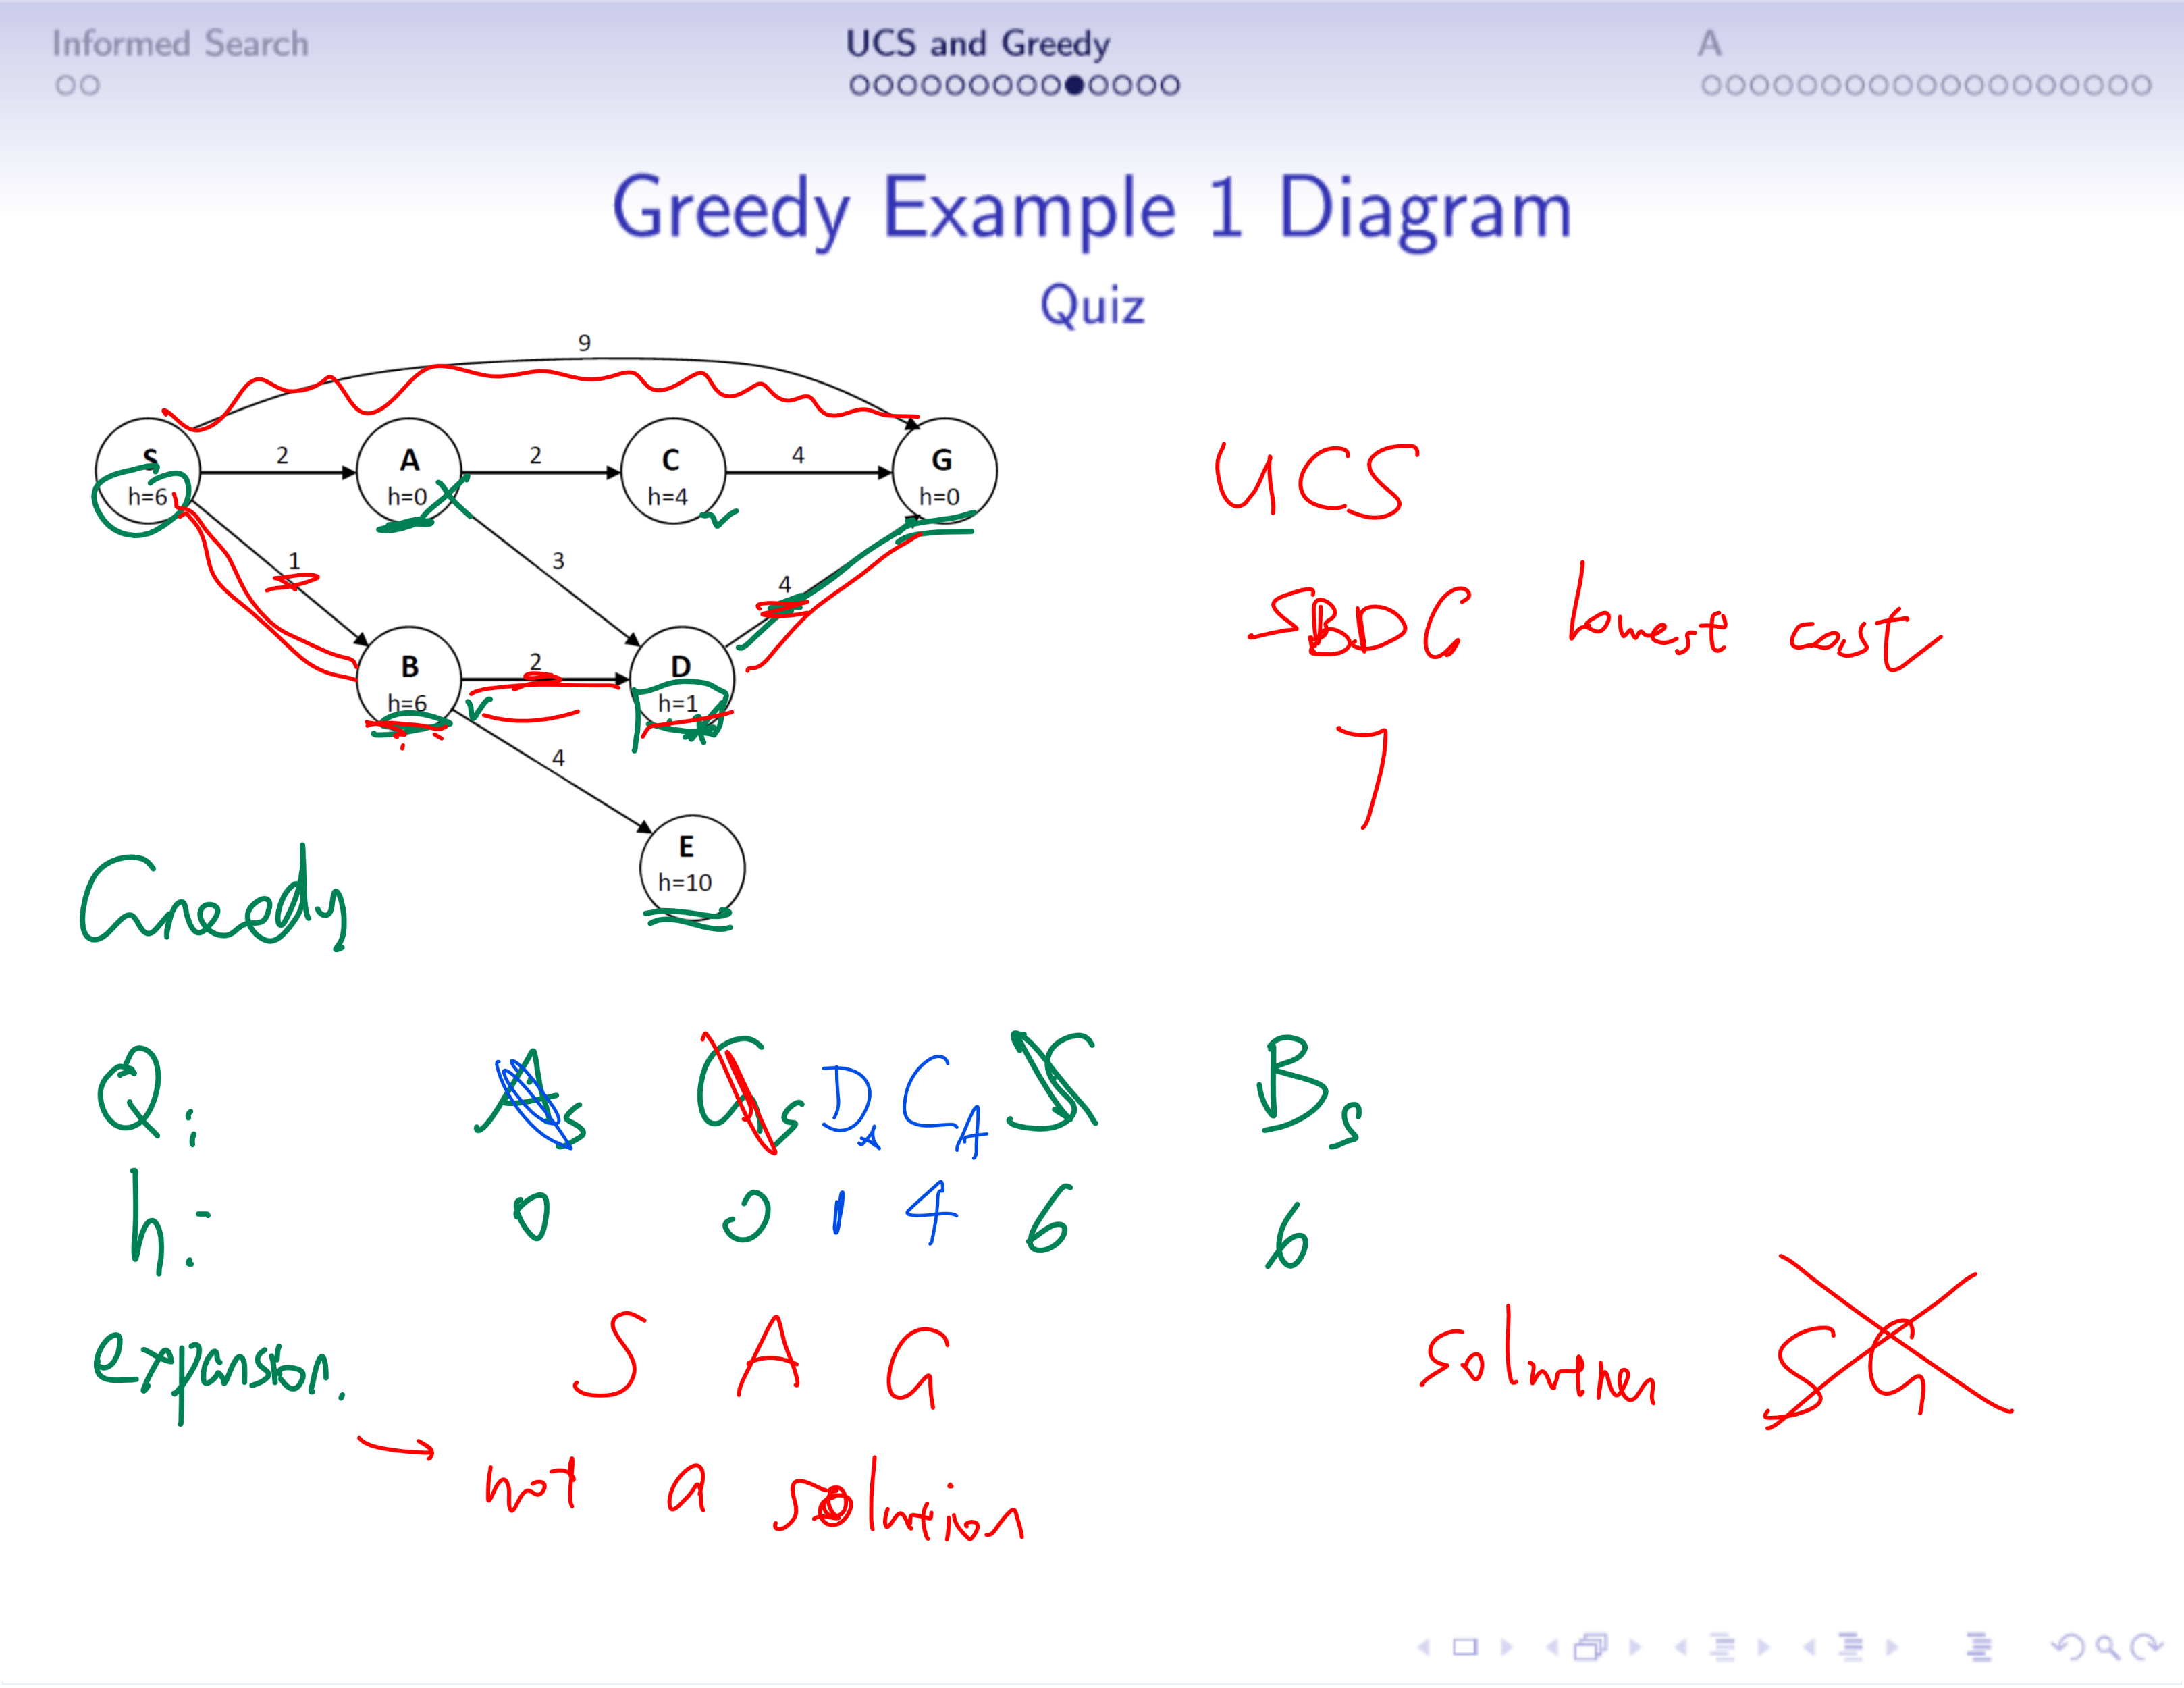 Informed Search UCS and Greedy A
Greedy Example 1 Diagram
Quiz
9
S h=6
2
A h=0
2
C h=4
4
G h=0
1
3
4
B h=6
2
D h=1
4
E h=10
UCS
SBDG lowest cost
7
Greedy
Q: A S G S D A C A S B S
h: 0 0 1 4 6 6
expansion. S A G
solution S G
→ not a solution